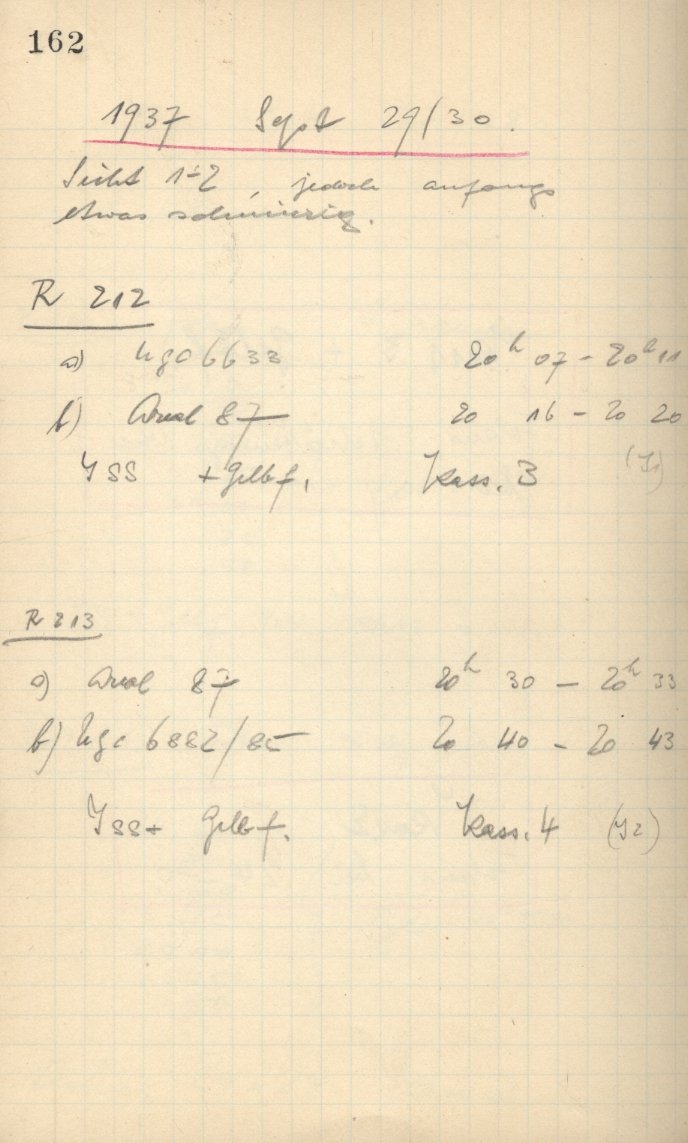 162
1937 Sept 29/30.
Sicht 1-2, jedoch anfangs
etwas schmierig.
R 212
a) Ngc 6633 20h 07 - 20h 11
b) 87 20 16 - 20 20
ISS + Gelbf. Kass. 3 (J1)
R 213
a) 87 20h 30 - 20h 33
b) Ngc 6882/85 20 40 - 20 43
ISS + Gelbf. Kass. 4 (J2)